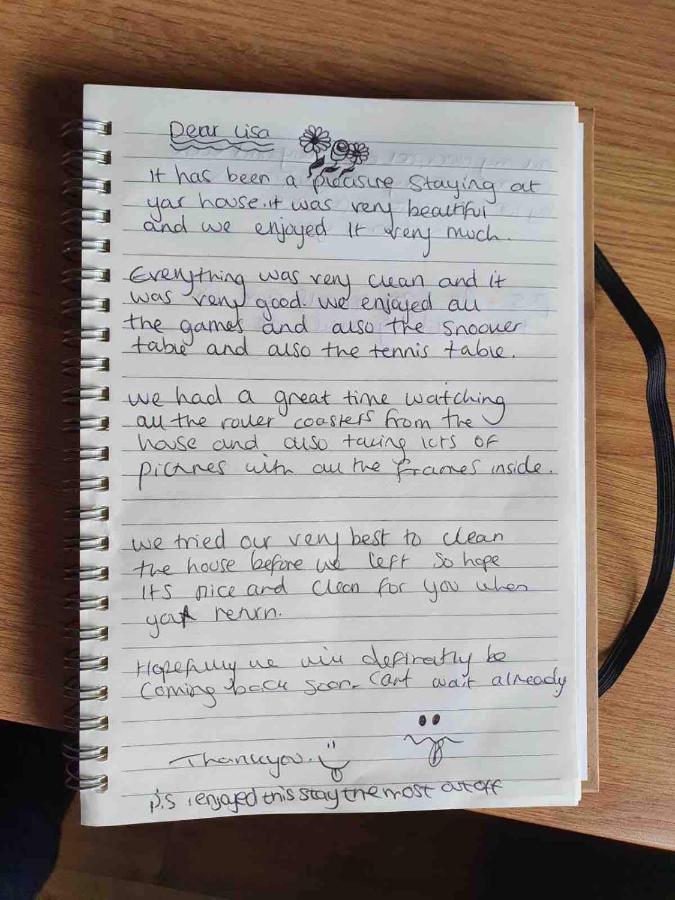 Dear Lisa
It has been a pleasure staying at
your house. it was very beautiful
and we enjoyed it very much.
Everything was very clean and it
was very good. we enjoyed all
the games and also the snooker
table and also the tennis table.
we had a great time watching
all the roller coasters from the
house and also taking lots of
pictures with all the frames inside.
we tried our very best to clean
the house before we left so hope
its nice and clean for you when
you return.
Hopefully we will definitely be
coming back soon. Cant wait already
Thankyou.
p.s i enjoyed this stay the most out off